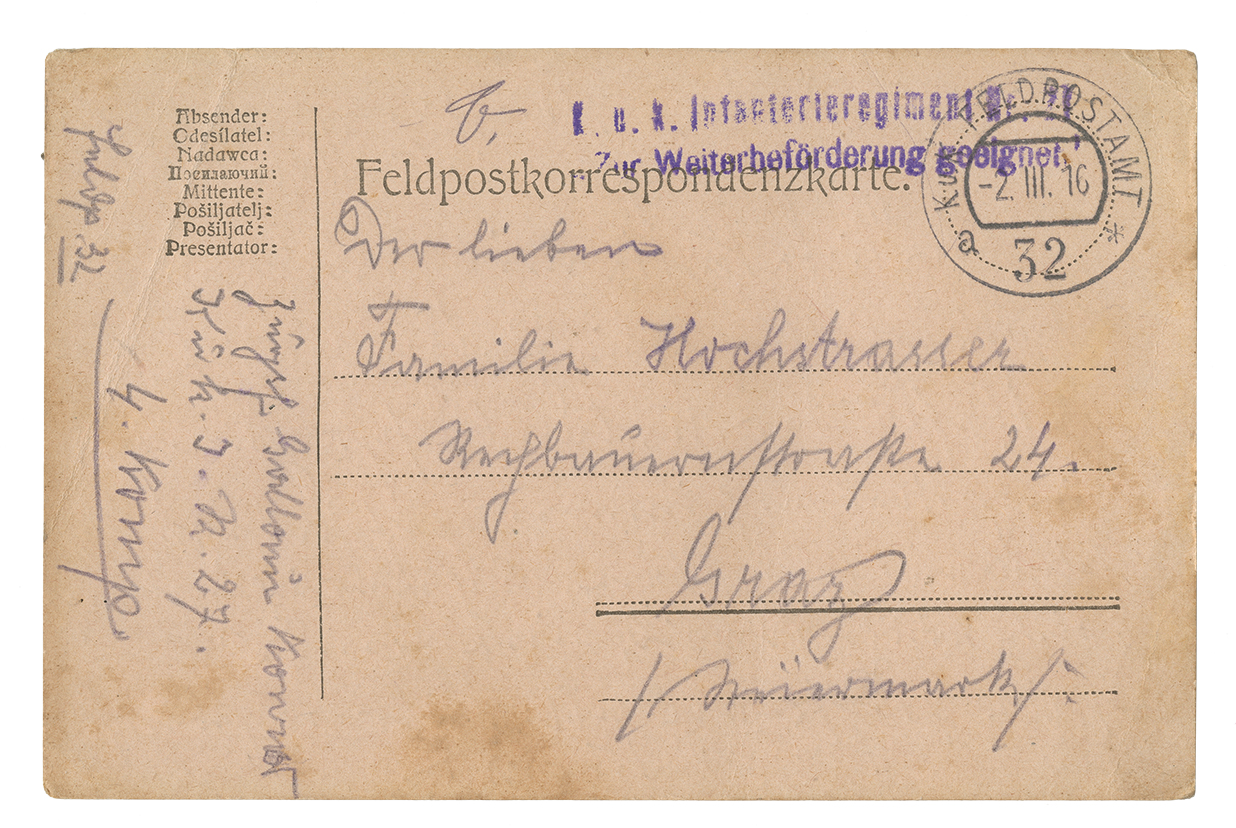 Absender:
Odesílatel:
Nadawca:
Посилаючий:
Mittente:
Pošiljatelj:
Pošiljač:
Presentator:
K. u. k. Infanterieregiment Nr. 27
"Zur Weiterbeförderung geeignet."
K.u.K. FELDPOSTAMT
-2. III. 16
a
32
*
Feldpostkorrespondenzkarte.
Der lieben
Familie Hochstrasser
Rechbauerstraße 24.
Graz
/: Steiermark :/
K. u. k. I. R. 27.
4. Komp.
Feldp. 32